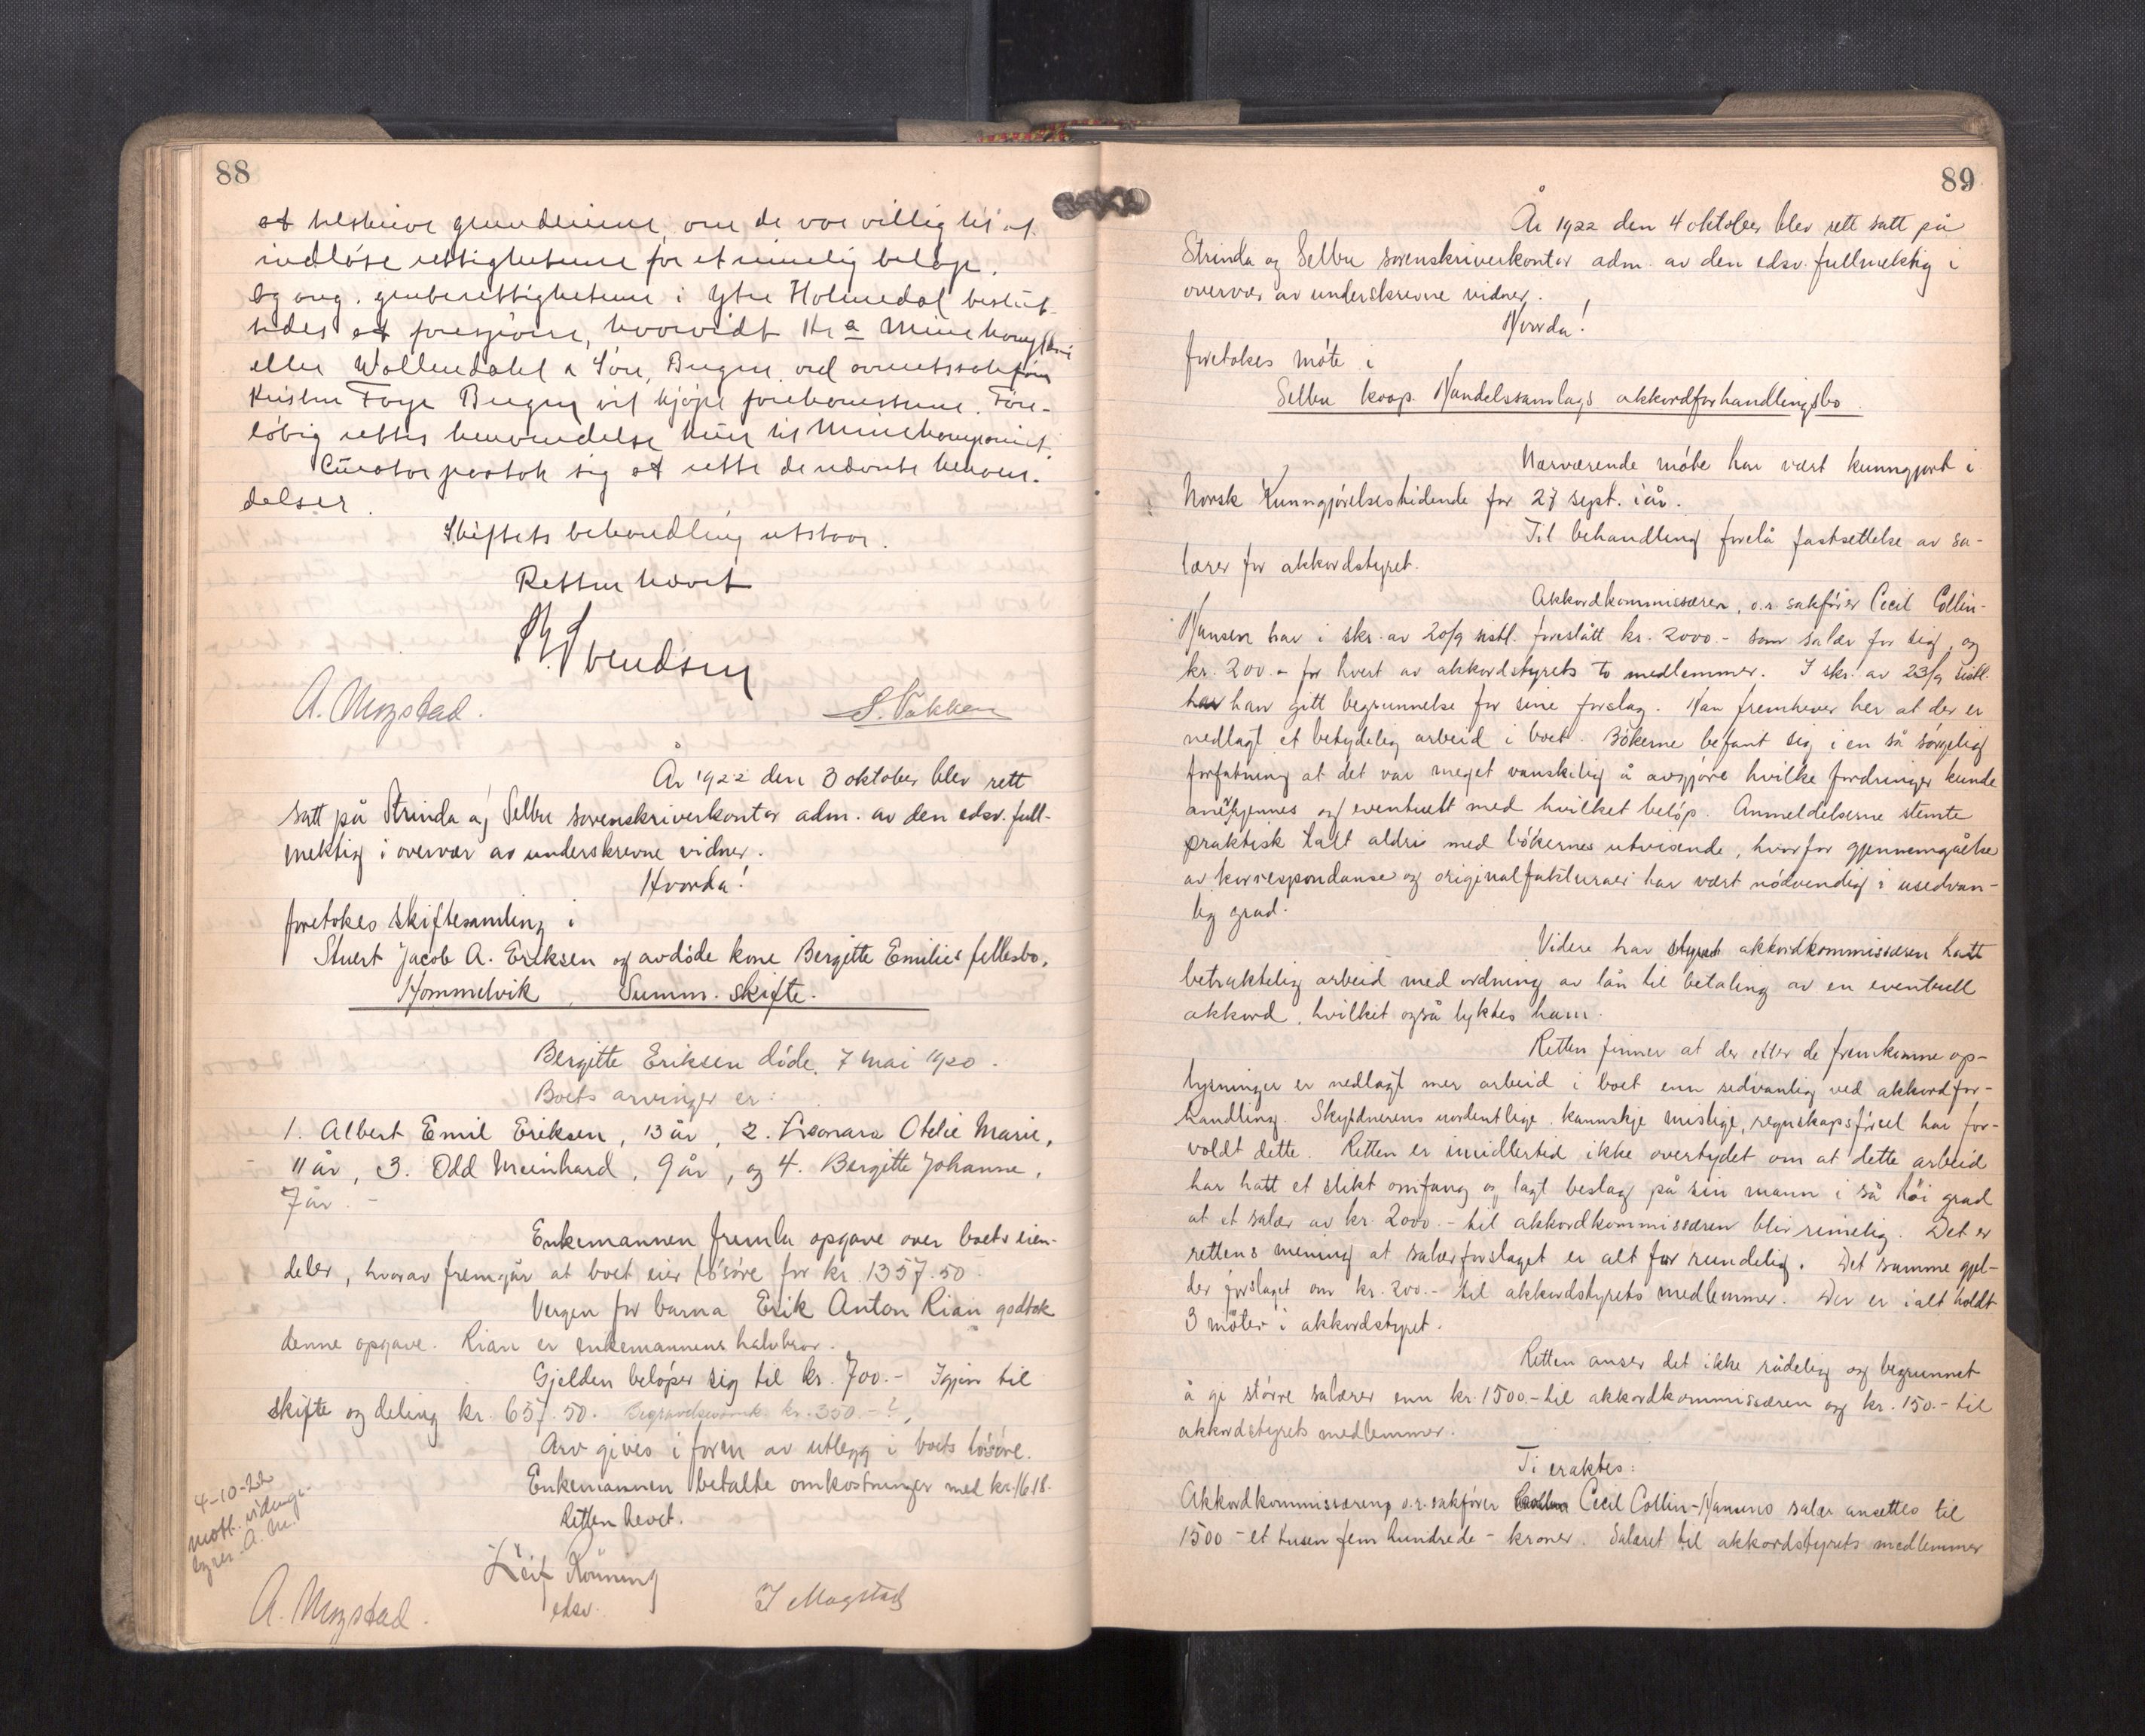 88
at tilskrive grundeierne, om de var villig til at
indløse rettighetene for et rimelig beløp.
Og ang. gruberettighetene i Ytre Holmedal beslut-
tedes at forespørre, hvorvidt Kra Minekompani
eller Wallendahl & Søn, Bergen, ved overretssakfører
Kristen Faye Bergen vil kjøpe forekomstene. Fore-
løbig rettes henvendelse kun til Minekompaniet.
Curator paatok sig at rette de nævnte henven-
delser.
Skiftets behandling utstaar.
Retten hævet
Svendsen
A. Mogstad.
S. Vakken
År 1922 den 3 oktober blev rett
satt på Strinda og Selbu sorenskriverkontor adm. av den edsv. full-
mektig i overvær av underskrevne vidner.
Hvorda!
foretokes skiftesamling i
Stuert Jacob A. Eriksen og avdøde kone Bergitte Emilies fellesbo,
Hommelvik, Summ. skifte.
Bergitte Eriksen døde 7 mai 1920.
Boets arvinger er:
1. Albert Emil Eriksen, 13 år, 2. Leonara Otelie Marie,
11 år, 3. Odd Meinhard, 9 år, og 4. Bergitte Johanne,
7 år. -
Enkemannen fremla opgave over boets eien-
deler, hvorav fremgår at boet eier løsøre for kr. 1357.50
Vergen for barna Erik Anton Rian godtok
denne opgave. Rian er enkemannens halvbror.
Gjelden beløper sig til kr. 700.- Igjen til
skifte og deling kr. 657.50. Begravelsesomk. kr. 350.-?,
Arv gives i form av utlegg i boets løsøre.
Enkemannen betalte omkostninger med kr. 16.18.
Retten hevet.
4-10-22
mott.
A. M.
Leif Rönning
edsv.
A. Mogstad.
J Mogstad
89
År 1922 den 4 oktober blev rett satt på
Strinda og Selbu sorenskriverkontor adm. av den edsv. fullmektig i
overvær av underskrevne vidner.
Hvorda!
foretokes møte i
Selbu koop. Handelssamlags akkordforhandlingsbo.
Nærværende møte har vært kunngjort i
Norsk Kunngjørelsestidende for 27 sept. iår.
Til behandling forelå fastsettelse av sa-
lærer for akkordstyret.
Akkordkommissæren, o.r. sakfører Cecil Collin-
Hansen har i skr. av 20/9 sistl. foreslått kr. 2000.- som salær for sig, og
kr. 200.- for hvert av akkordstyrets to medlemmer. I skr. av 23/9 sistl.
har han gitt begrunnelse for sine forslag. Han fremhever her at der er
nedlagt et betydelig arbeid i boet. Bøkerne befant sig i en så sørgelig
forfatning at det var meget vanskelig å avgjøre hvilke fordringer kunde
anerkjennes og eventuelt med hvilket beløp. Anmeldelserne stemte
praktisk talt aldri med bøkernes utvisende, hvorfor gjennemgåelse
av korrespondanse og originalfakturaer har vært nødvendig i usedvan-
lig grad.
Videre har styret akkordkommissæren hatt
betraktelig arbeid med ordning av lån til betaling av en eventuell
akkord, hvilket også lyktes ham.
Retten finner at der etter de fremkomne op-
lysninger er nedlagt mer arbeid i boet enn sedvanlig ved akkordfor-
handling. Skyldnerens uordentlige, kannskje mislige, regnskapsførsel har for-
voldt dette. Retten er imidlertid ikke overtydet om at dette arbeid
har hatt et slikt omfang og lagt beslag på sin mann i så høi grad
at et salær av kr. 2000.- til akkordkommissæren blir rimelig. Det er
rettens mening at salærforslaget er alt for rundelig. Det samme gjel-
der forslaget om kr. 200.- til akkordstyrets medlemmer. Der er ialt holdt
3 møter i akkordstyret.
Retten anser det ikke rådelig og begrunnet
å gi større salærer enn kr. 1500.- til akkordkommissæren og kr. 150.- til
akkordstyrets medlemmer.
Ti eraktes:
Akkordkommissæren, o.r. sakfører Cecil Collin-Hansens salær ansettes til
1500 - et tusen fem hundrede - kroner. Salæret til akkordstyrets medlemmer